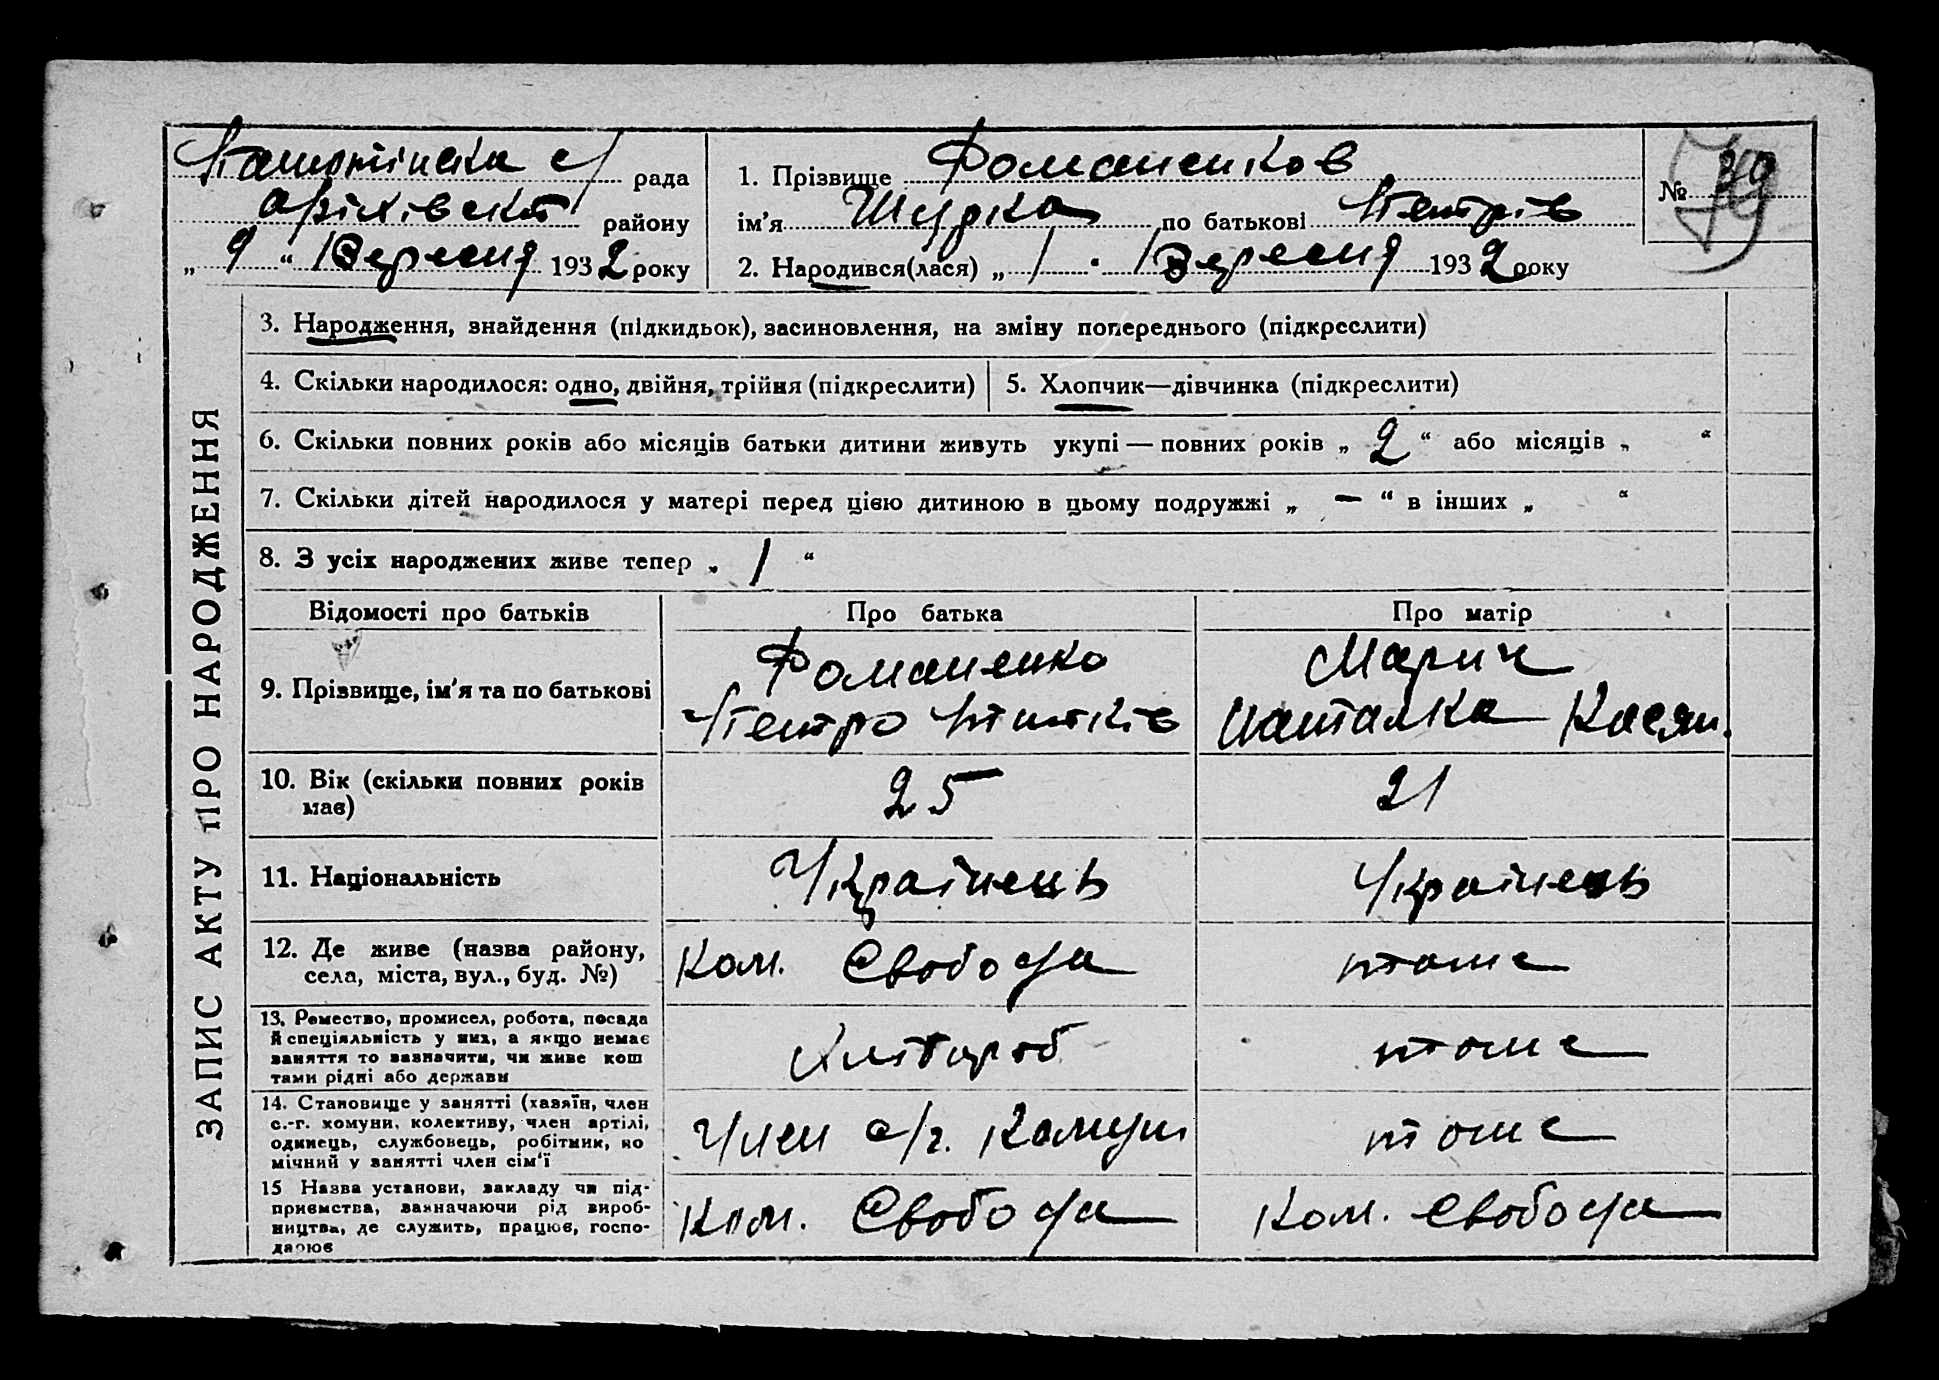 с/ рада
Оріхівськ району
„ 9 “ Вересня 1932 року
1. Прізвище Романенков
ім'я Шурка по батькові Петрів
2. Народився(лася) „ 1 “ Вересня 1932 року
№ 79
ЗАПИС АКТУ ПРО НАРОДЖЕННЯ
3. Народження, знайдення (підкидьок), засиновлення, на зміну попереднього (підкреслити)
4. Скільки народилося: одно, двійня, трійня (підкреслити)
5. Хлопчик—дівчинка (підкреслити)
6. Скільки повних років або місяців батьки дитини живуть укупі — повних років „ 2 “ або місяців „ “
7. Скільки дітей народилося у матері перед цією дитиною в цьому подружжі „ — “ в інших „ “
8. З усіх народжених живе тепер „ 1 “
Відомості про батьків
Про батька
Про матір
9. Прізвище, ім'я та по батькові
Романенко
Петро
Марич
Наталка Касян.
10. Вік (скільки повних років
має)
25
21
11. Національність
Українець
Українець
12. Де живе (назва району,
села, міста, вул., буд. №)
Ком. Свобода
тоже
13. Ремество, промисел, робота, посада
й спеціяльність у них, а якщо немає
заняття то зазначити, чи живе кош
тами рідні або держави
Хлібороб
тоже
14. Становище у занятті (хазяїн, член
с.-г. комуни, колективу, член артілі,
одинець, службовець, робітник, по
мічний у занятті член сім'ї
Член с/г. Комун
тоже
15 Назва установи, закладу чи під-
приємства, зазначаючи рід вироб-
ництва, де служить, працює, госпо-
дарює
Ком. Свобода
Ком. Свобода